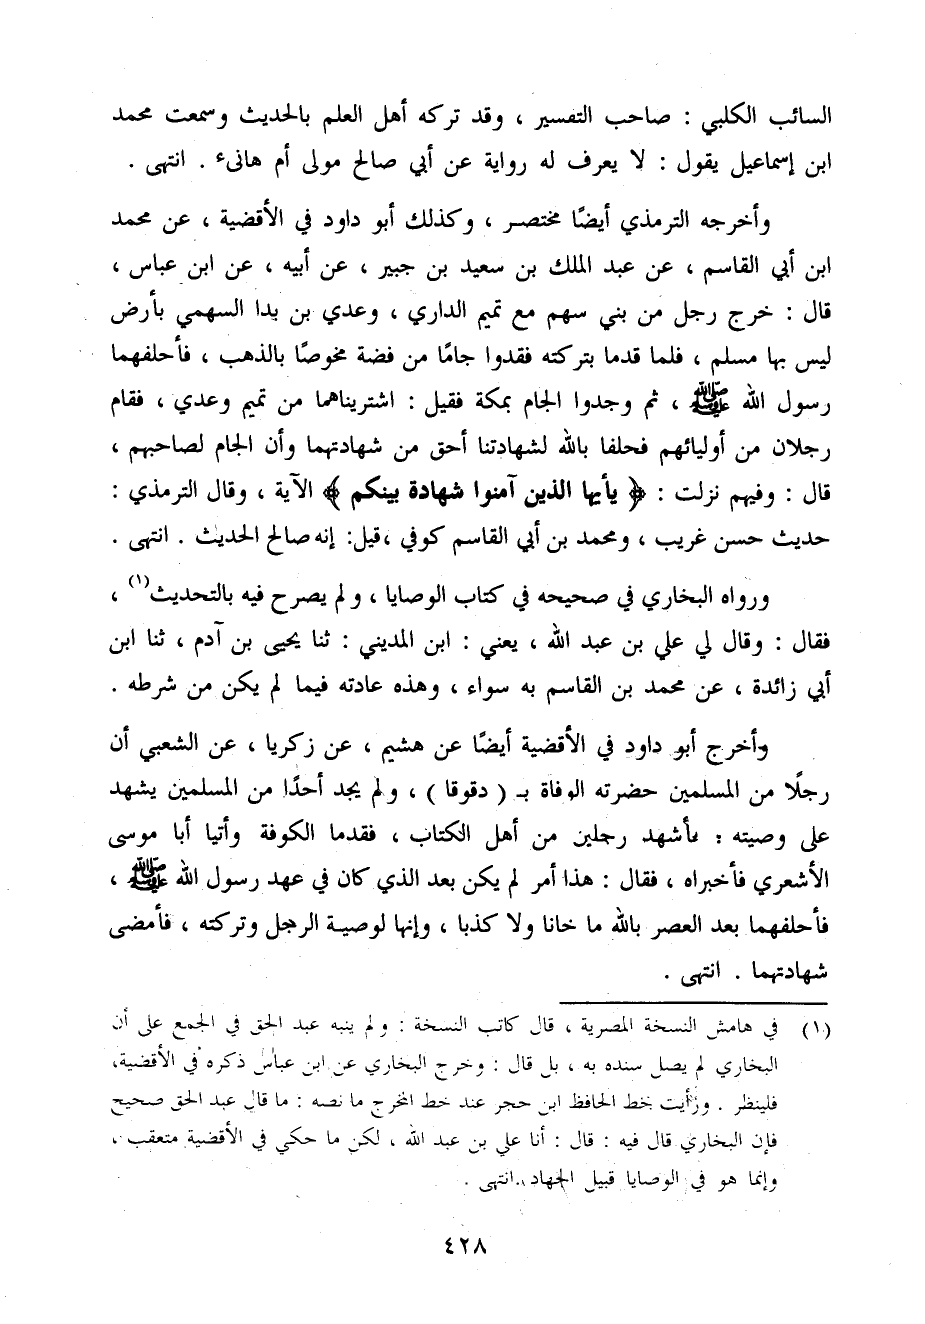 السائب الكلبي : صاحب التفسير ، وقد تركه أهل العلم بالحديث وسمعت محمد
ابن إسماعيل يقول : لا يعرف له رواية عن أبي صالح مولى أم هانىء . انتهى .
وأخرجه الترمذي أيضًا مختصر ، وكذلك أبو داود في الأقضية ، عن محمد
ابن أبي القاسم ، عن عبد الملك بن سعيد بن جبير ، عن أبيه ، عن ابن عباس ،
قال : خرج رجل من بني سهم مع تميم الداري ، وعدي بن بدا السهمي بأرض
ليس بها مسلم ، فلما قدما بتركته فقدوا جامًا من فضة مخوصًا بالذهب ، فأحلفهما
رسول الله ﷺ ، ثم وجدوا الجام بمكة فقيل : اشتريناهما من تميم وعدي ، فقام
رجلان من أوليائهم فحلفا بالله لشهادتنا أحق من شهادتهما وأن الجام لصاحبهم ،
قال : وفيهم نزلت : ﴿ يأيها الذين آمنوا شهادة بينكم ﴾ الآية ، وقال الترمذي :
حديث حسن غريب ، ومحمد بن أبي القاسم كوفي ، قيل : إنه صالح الحديث . انتهى .
ورواه البخاري في صحيحه في كتاب الوصايا ، ولم يصرح فيه بالتحديث(١) ،
فقال : وقال لي علي بن عبد الله ، يعني : ابن المديني : ثنا يحيى بن آدم ، ثنا ابن
أبي زائدة ، عن محمد بن القاسم به سواء ، وهذه عادته فيما لم يكن من شرطه .
وأخرج أبو داود في الأقضية أيضًا عن هشيم ، عن زكريا ، عن الشعبي أن
رجلًا من المسلمين حضرته الوفاة بـ ( دقوقا ) ، ولم يجد أحدًا من المسلمين يشهد
على وصيته : فأشهد رجلين من أهل الكتاب ، فقدما الكوفة وأتيا أبا موسى
الأشعري فأخبراه ، فقال : هذا أمر لم يكن بعد الذي كان في عهد رسول الله ﷺ ،
فأحلفهما بعد العصر بالله ما خانا ولا كذبا ، وإنها لوصية الرجل وتركته ، فأمضى
شهادتهما . انتهى .
(١) في هامش النسخة المصرية ، قال كاتب النسخة : ولم ينبه عبد الحق في الجمع على أن
البخاري لم يصل سنده به ، بل قال : وخرج البخاري عن ابن عباس ذكره في الأقضية،
فلينظر . ورأيت خط الحافظ ابن حجر عند خط المخرج ما نصه : ما قال عبد الحق صحيح
فإن البخاري قال فيه : قال : أنا علي بن عبد الله ، لكن ما حكي في الأقضية متعقب ،
وإنما هو في الوصايا قبيل الجهاد .. انتهى .
٤٢٨